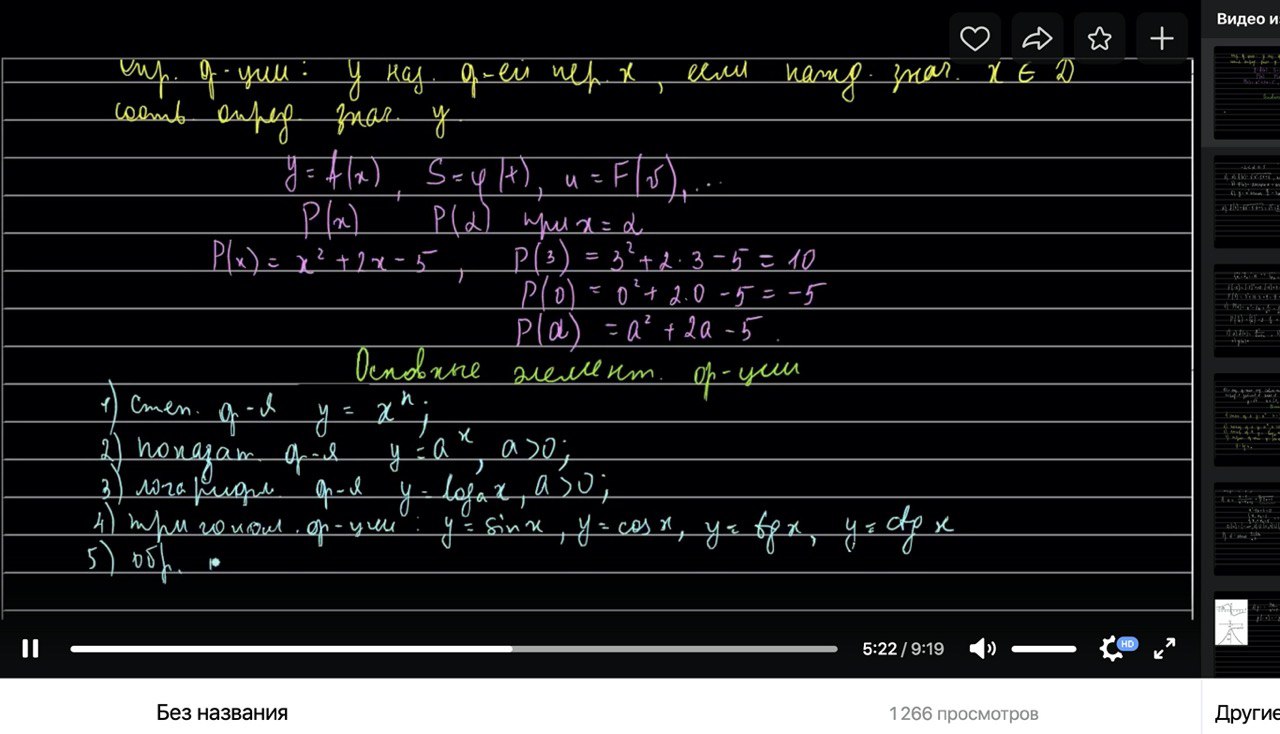 Видео из
Опр. ф-ции: y наз. ф-ей пер. x, если кажд. знач. x ∈ D
соотв. опред. знач. y.
y = f(x), S = φ(t), u = F(v), ...
P(x) P(2) при x = 2
P(x) = x² + 2x - 5, P(3) = 3² + 2·3 - 5 = 10
P(0) = 0² + 2·0 - 5 = -5
P(a) = a² + 2a - 5.
Основные элемент. ф-ции
1) Степ. ф-я y = xⁿ;
2) показат. ф-я y = aˣ, a > 0;
3) логарифм. ф-я y = logₐx, a > 0;
4) тригоном. ф-ции: y = sin x, y = cos x, y = tg x, y = ctg x
5) обр.
5:22 / 9:19 HD
Без названия 1 266 просмотров Другие